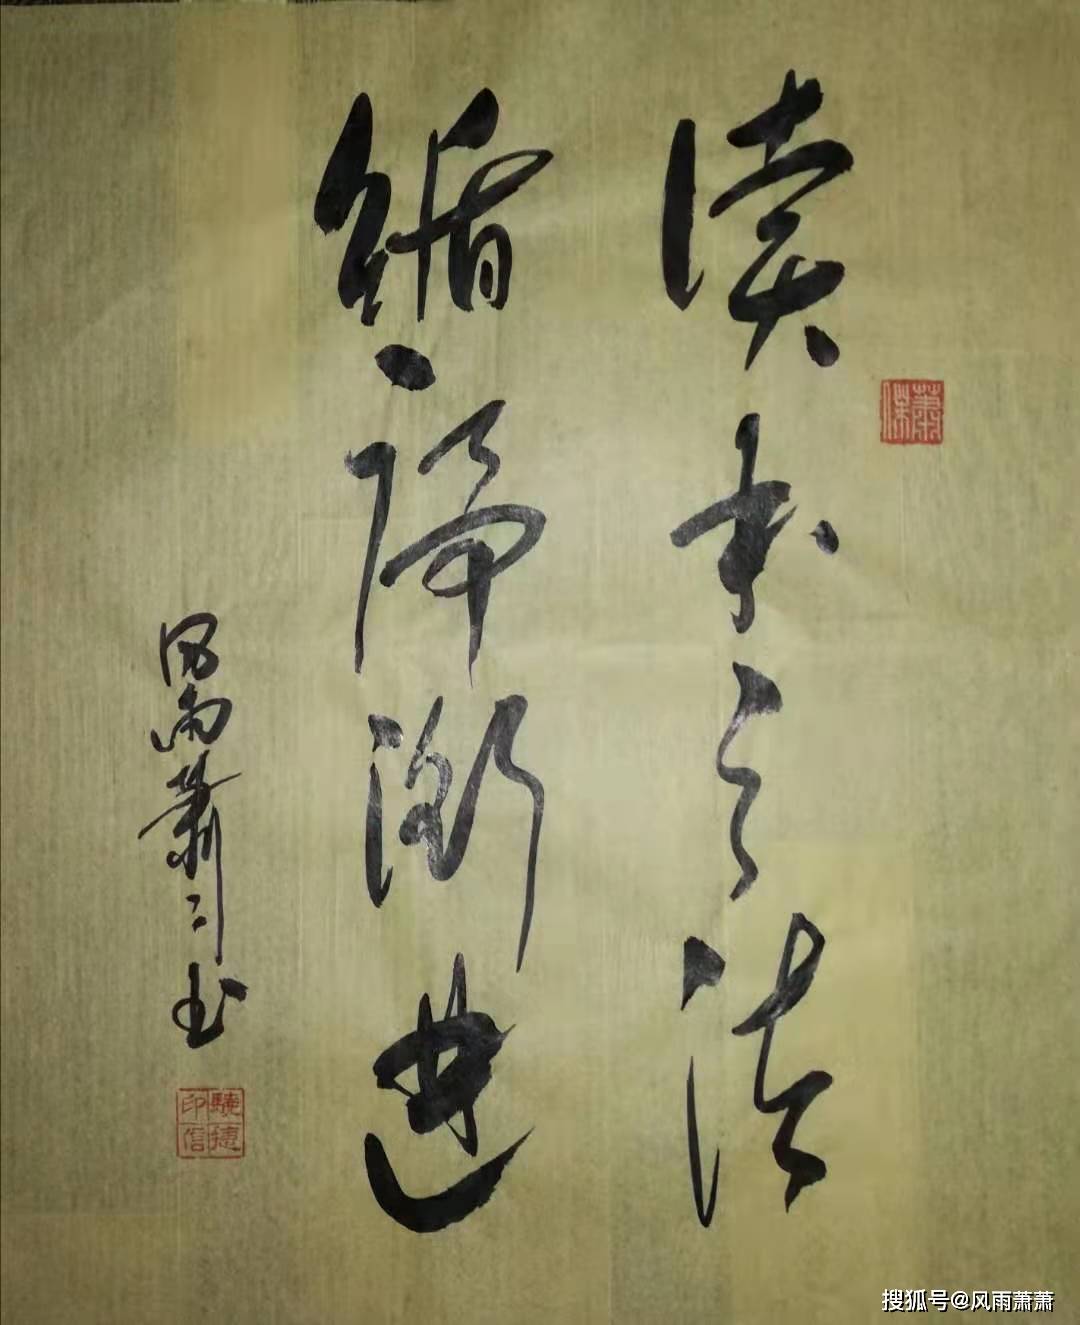 读书之法
循序渐进
风雨萧〻书
搜狐号@风雨萧萧